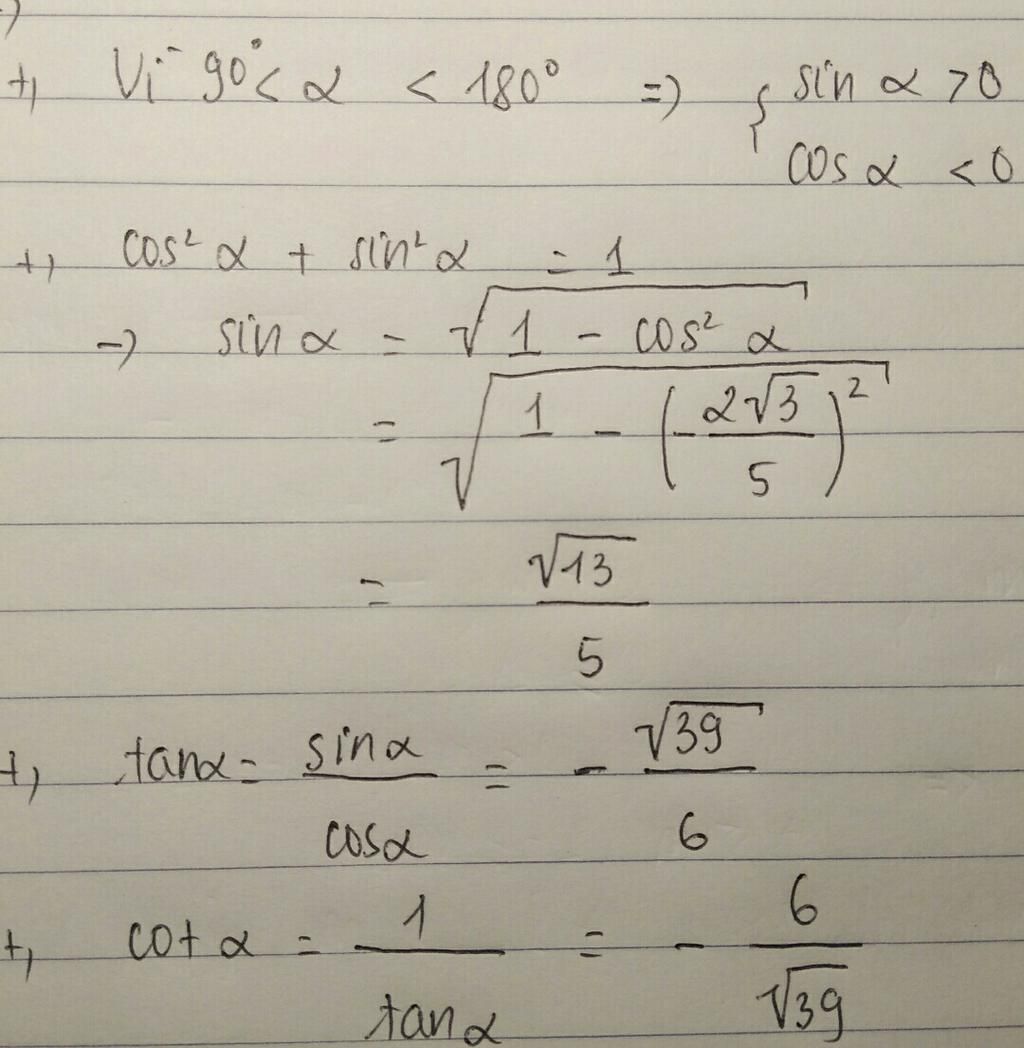 +, Vì 90° < α < 180° => { sin α > 0
cos α < 0
+, cos² α + sin² α = 1
-> sin α = √(1 - cos² α)
= √(1 - (-2√3/5)²)
= √13/5
+, tanα = sinα/cosα = - √39/6
+, cot α = 1/tanα = - 6/√39